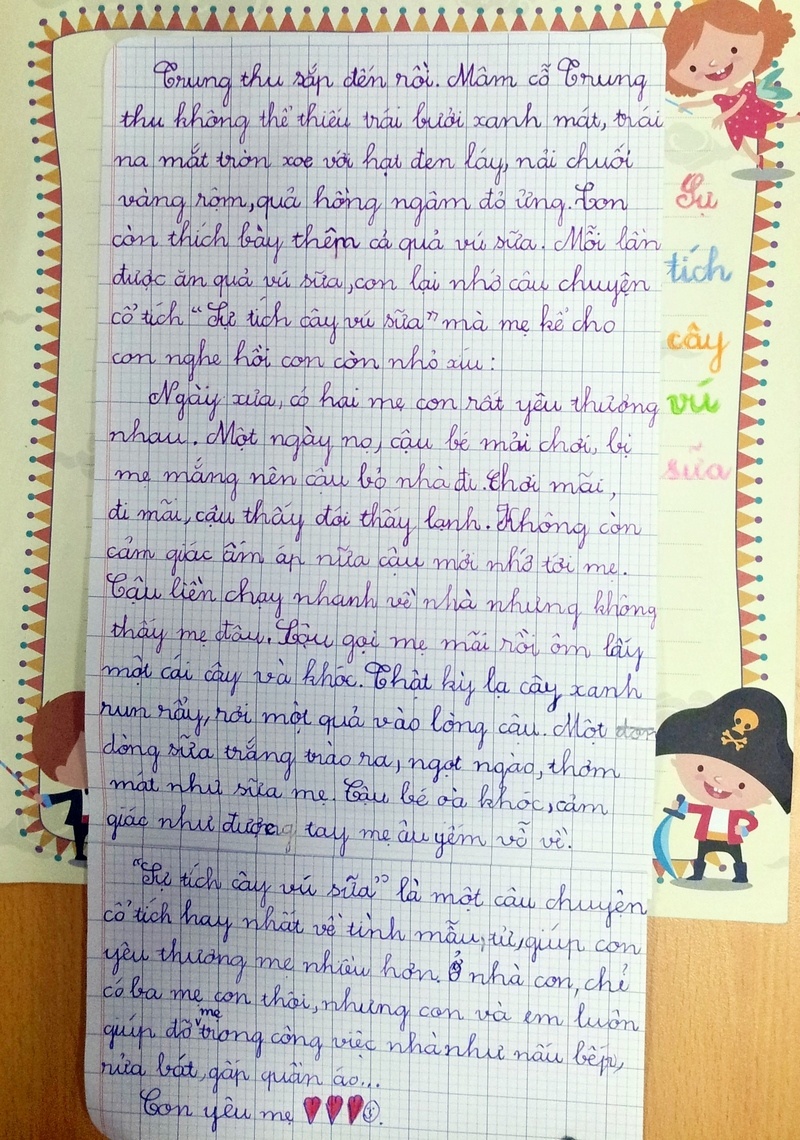 Trung thu sắp đến rồi. Mâm cỗ Trung
thu không thể thiếu trái bưởi xanh mát, trái
na mắt tròn xoe với hạt đen láy, nải chuối
vàng rộm, quả hồng ngâm đỏ ửng. Con
còn thích bày thêm cả quả vú sữa. Mỗi lần
được ăn quả vú sữa, con lại nhớ câu chuyện
cổ tích "Sự tích cây vú sữa" mà mẹ kể cho
con nghe hồi con còn nhỏ xíu:
Ngày xưa, có hai mẹ con rất yêu thương
nhau. Một ngày nọ, cậu bé mải chơi, bị
mẹ mắng nên cậu bỏ nhà đi. Chơi mãi,
đi mãi, cậu thấy đói thấy lạnh. Không còn
cảm giác ấm áp nữa cậu mới nhớ tới mẹ.
Cậu liền chạy nhanh về nhà nhưng không
thấy mẹ đâu. Cậu gọi mẹ mãi rồi ôm lấy
một cái cây và khóc. Thật kỳ lạ cây xanh
run rẩy, rơi một quả vào lòng cậu. Một
dòng sữa trắng trào ra, ngọt ngào, thơm
mát như sữa mẹ. Cậu bé oà khóc, cảm
giác như được tay mẹ âu yếm vỗ về.
"Sự tích cây vú sữa" là một câu chuyện
cổ tích hay nhất về tình mẫu tử, giúp con
yêu thương mẹ nhiều hơn. Ở nhà con, chỉ
có ba mẹ con thôi, nhưng con và em luôn
giúp đỡ mẹ trong công việc nhà như nấu bếp,
rửa bát, gấp quần áo...
Con yêu mẹ
Sự
tích
cây
vú
sữa